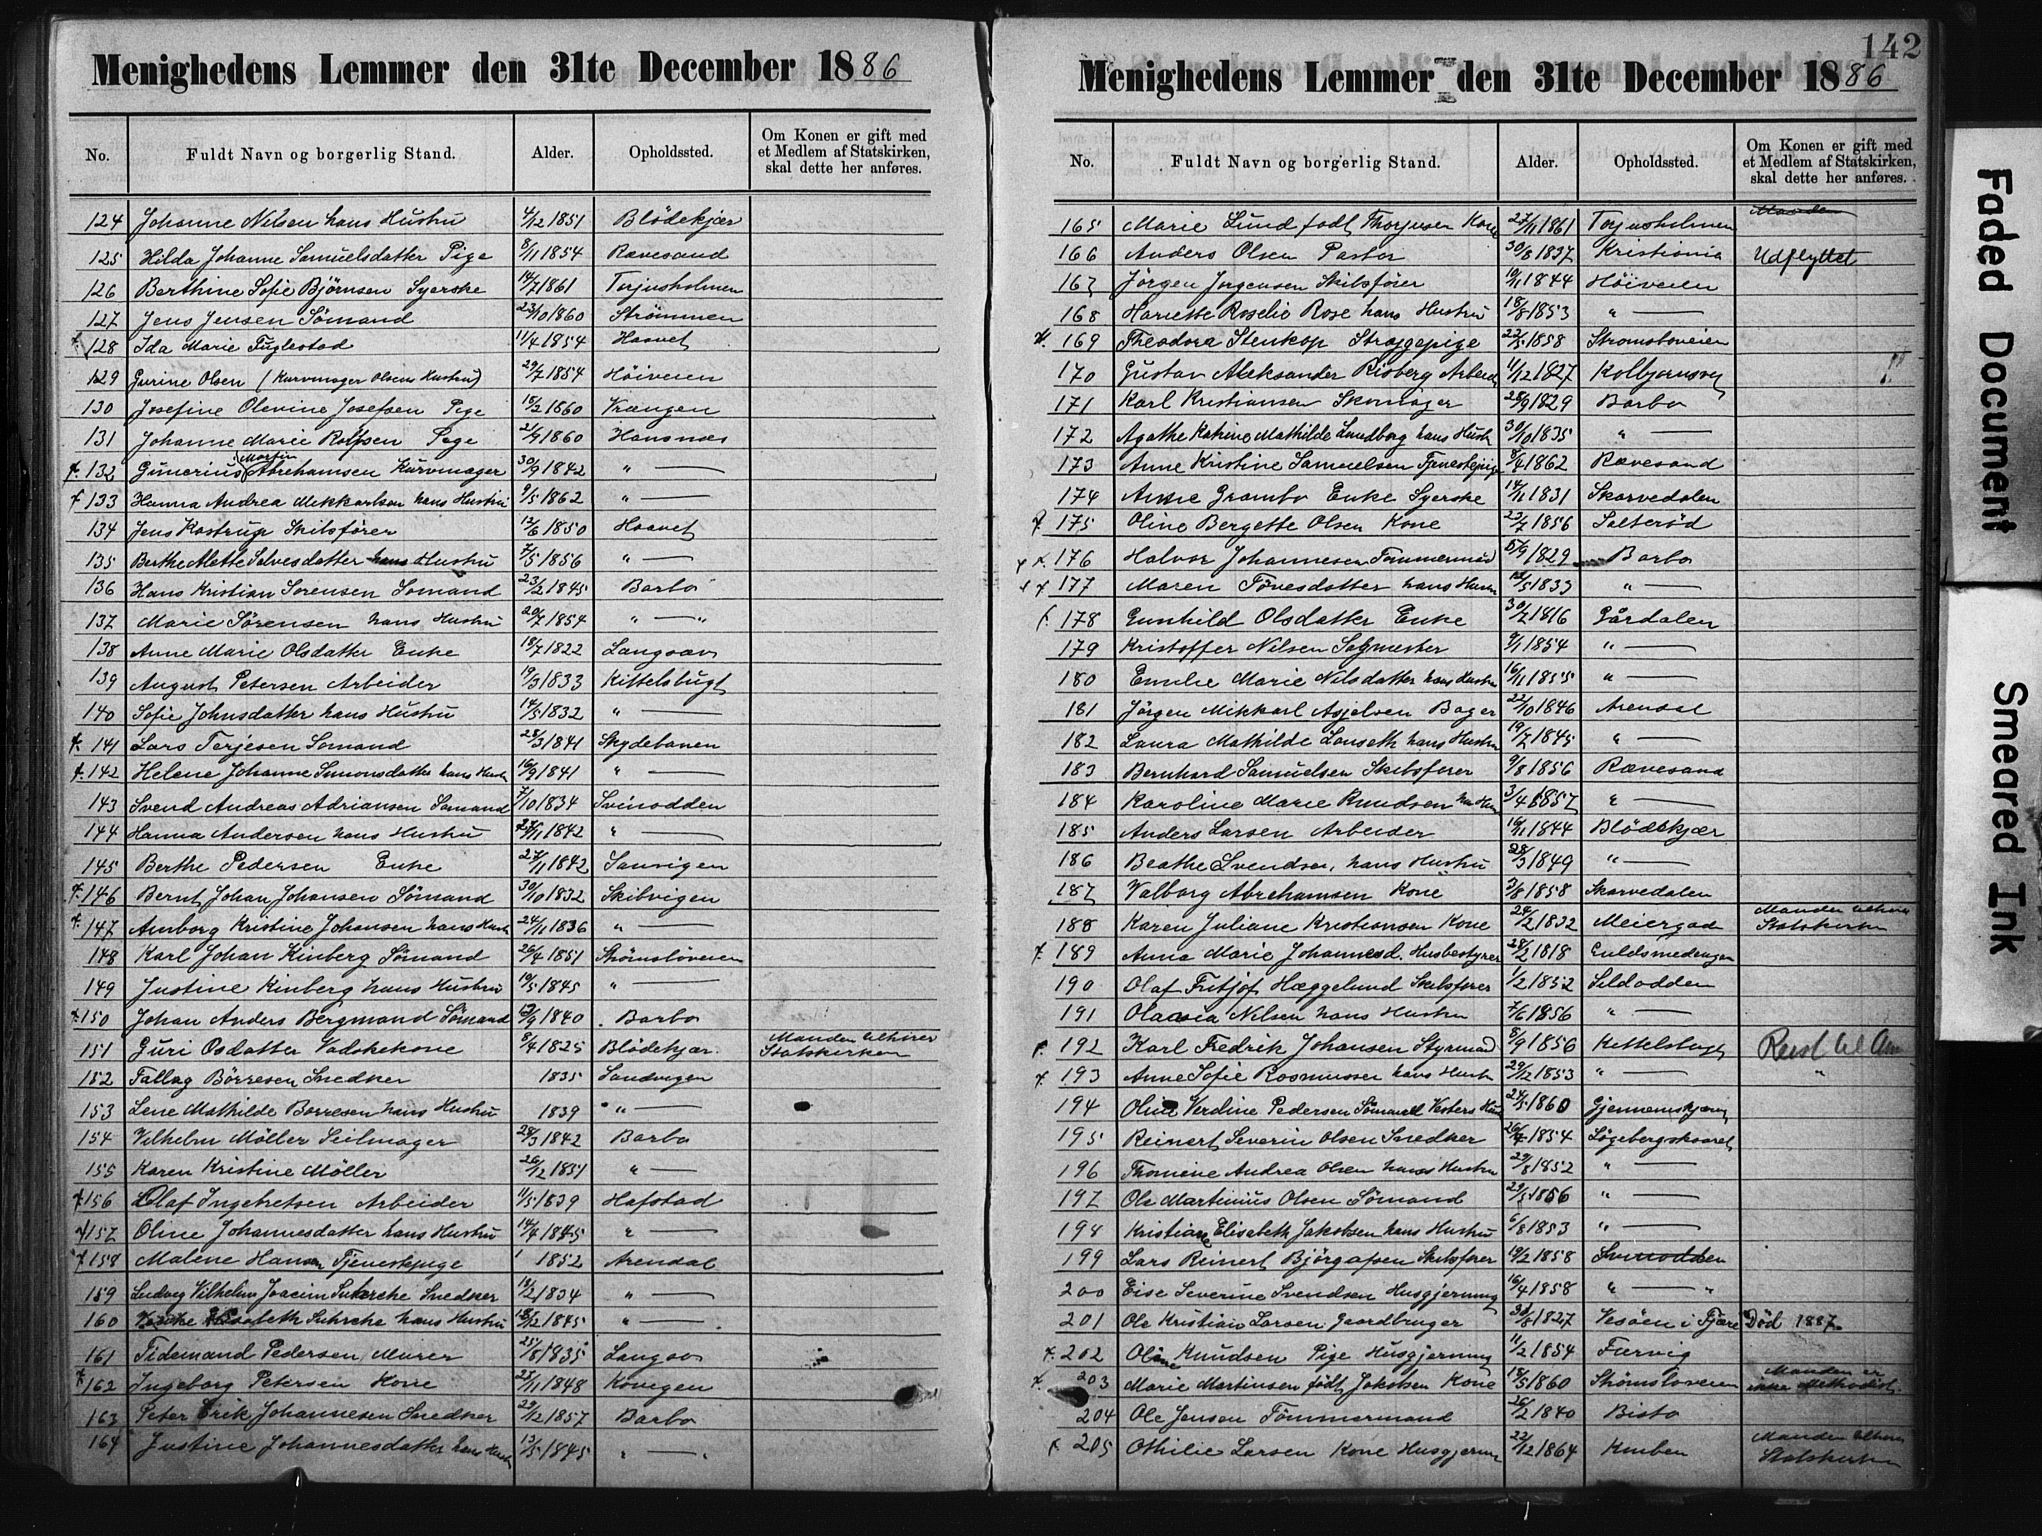 142
Menighedens Lemmer den 31te December 1886
No. Fuldt Navn og borgerlig Stand. Alder. Opholdssted. Om Konen er gift med et Medlem af Statskirken, skal dette her anføres.
124 Johanne Nilsen hans Hustru 4/12 1851 Blödekjær
125 Hilda Johanne Samuelsdatter Pige 8/11 1854 Rævesand
126 Berthine Sofie Björnsen Syerske 14/7 1861 Torjusholmen
127 Jens Jensen Sömand 23/10 1860 Strömmen
128 Ida Marie Fuglestad 11/4 1854 Haavet
129 Gurine Olsen (Kurvmager Olsens Hustru) 29/7 1854 Höiveien
130 Josefine Olevine Josefsen Pige 18/2 1860 Vrængen
131 Johanne Marie Rolfsen Pige 2/9 1860 Hansnæs
132 Gunerius Martin Abrehamsen Kurvmager 30/9 1842 "
133 Hanna Andrea Mikkarlsen hans Hustru 9/5 1862 "
134 Jens Rostrup Skibsförer 13/6 1850 Haavet
135 Berthe Mette Salvesdatter hans Hustru 7/5 1856 "
136 Hans Kristian Sorensen Somand 23/2 1845 Barbo
137 Marie Sörensen hans Hustru 20/7 1854 " "
138 Anne Marie Olsdatter Enke 18/7 1822 Langsæv
139 August Petersen Arbeider 19/3 1833 Kittelsbugt
140 Sofie Johnsdatter hans Hustru 14/5 1832 "
141 Lars Terjesen Somand 28/3 1841 Skydebanen
142 Helene Johanne Simonsdatter hans Hust 16/9 1841 "
143 Svend Andreas Adriansen Somand 7/10 1834 Svinodden
144 Hanna Andersen hans Hustru 27/11 1842 "
145 Berthe Pedersen Enke 27/11 1842 Sanvigen
146 Bernt Johan Johansen Sömand 30/10 1832 Skibvigen
147 Amborg Kristine Johansen hans Hust 24/11 1836 "
148 Karl Johan Kinberg Sömand 26/4 1851 Strömsloveien
149 Justine Kinberg hans Hustru 19/5 1845 "
150 Johan Anders Bergmand Sömand 13/9 1840 Barbo
151 Guri Osdatter Vadskekone 8/4 1825 Blödekjær Manden tilhører Statskirken
152 Fallag Börresen Snedker 1835 Sandvigen
153 Lene Mathilde Borresen hans Hustru 1839 "
154 Vilhelm Möller Seilmager 28/3 1842 Barbo
155 Karen Kristine Möller 26/12 1851 "
156 Olaf Ingebretsen Arbeider 11/5 1839 Hafstad
157 Oline Johannesdatter hans Hustru 14/4 1845 "
158 Malene Hansen Tjenestepige 1852 Arendal
159 Ludvig Vilhelm Joacim Suhrche Snedker 13/2 1834 "
160 Elisabeth Suhrche hans Hustru 18/12 1845 "
161 Tidemand Pedersen Murer 25/8 1835 Langsæv
162 Ingeborg Petersen Kone 23/11 1848 Kovigen
163 Peter Erik Johannesen Snedker 29/12 1857 Barbo
164 Justine Johannesdatter hans Hust 13/5 1845 " "
Menighedens Lemmer den 31te December 1886
No. Fuldt Navn og borgerlig Stand. Alder. Opholdssted. Om Konen er gift med et Medlem af Statskirken, skal dette her anføres.
165 Marie Lund født Thorjusen Kone 27/11 1861 Torjusholmen Manden
166 Anders Olsen Pastor 30/8 1837 Kristiania Udflyttet
167 Jörgen Jorgensen Skibsförer 10/11 1844 Höiveien
168 Hariette Roselie Rose hans Hustru 18/8 1853 "
169 Theodora Stenkop Strygepige 22/5 1858 Stromsboveien
170 Gustav Aleksander Risberg Arbeid 11/12 1827 Kolbjornsvg
171 Karl Kristiansen Skomager 28/9 1829 Barbo
172 Agathe Katrine Mathilde Lundborg hans Hust 30/10 1835 "
173 Anne Kristine Samuelsen Tjenestepige 8/4 1862 Rævesand
174 Anne Grambo Enke Syerske 14/11 1831 Skarvedalen
175 Oline Bergette Olsen Kone 23/7 1856 Salteröd
176 Halvor Johannesen Tommermand 5/9 1829 Barbo
177 Maren Tövesdatter hans Hustru 12/5 1833 "
178 Gunhild Olsdatter Enke 30/2 1816 Gårdalen
179 Kristoffer Nilsen Sagmester 9/1 1854 "
180 Emilie Marie Nilsdatter hans Hustru 16/11 1855 "
181 Jörgen Mikkarl Asjelsen Bager 22/10 1846 Arendal
182 Laura Mathilde Lonseth hans Hustru 19/7 1845 "
183 Bernhard Samuelsen Skibsforer 9/8 1856 Rævesand
184 Karoline Marie Knudsen hans Hus 3/4 1857 "
185 Anders Larsen Arbeider 19/11 1844 Blödekjær
186 Beathe Svendsen hans Hustru 28/3 1849 "
187 Valborg Abrehamsen Kone 3/8 1858 Skarvedalen
188 Karen Juliane Kristiansen Kone 24/2 1832 Meiergad Manden tilhører Statskirken
189 Anna Marie Johannesd. Husbestyrer 28/2 1818 Guldsmedengen
190 Olaf Fritjof Hæggelund Skibsforer 1/2 1852 Sildodden
191 Olava Nilsen hans Hustru 7/6 1856 "
192 Karl Fredrik Johansen Styrmand 8/9 1856 Kittelsbugt Reist til Am
193 Anne Sofie Rasmussen hans Hustr 29/12 1853 " "
194 Oline Verdine Pedersen Sömand Vesters Hus 24/5 1860 Gjennemskjæring
195 Reinert Severin Olsen Snedker 26/4 1854 Lögebergskaaret
196 Thomine Andrea Olsen hans Hustru 29/8 1852 "
197 Ole Martinius Olsen Sömand 29/5 1856 "
198 Kristiane Elisabeth Jakobsen hans Hustru 6/8 1853 "
199 Lars Reinert Björgafsen Skibsforer 19/2 1858 Svinodden
200 Eise Severine Svendsen Husgjerning 16/4 1858 " "
201 Ole Kristian Larsen Gaardbruger 30/8 1827 Vesöen i Fjære Död 1887
202 Oline Knudsen Pige Husgjerning 11/2 1854 Færvig
203 Marie Martinsen född Jakobsen Kone 18/5 1860 Strömsloveien Manden er ikke Methodist
204 Ole Jensen Tömmermand 26/2 1840 Bisto
205 Othilie Larsen Kone Husgjerni 22/12 1864 Kniben Manden tilhører Statskirken
Faded Document
Smeared Ink